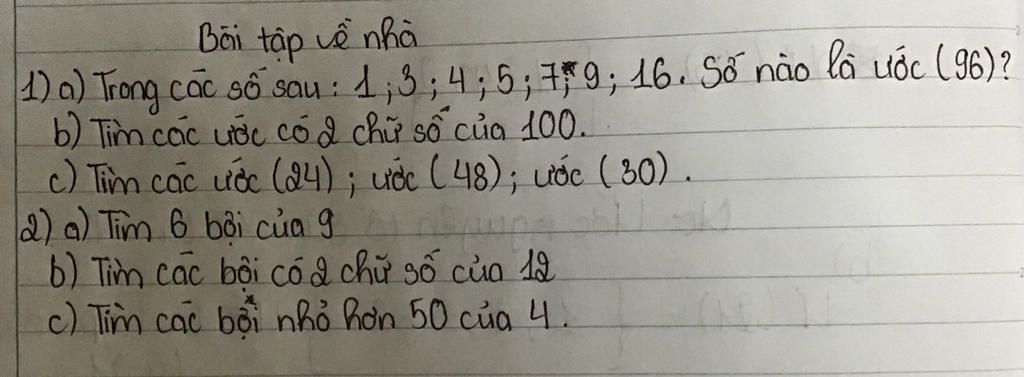 Bài tập về nhà
1) a) Trong các số sau : 1 ; 3 ; 4 ; 5 ; 7 ; 9 ; 16. Số nào là ước (96)?
b) Tìm các ước có 2 chữ số của 100.
c) Tìm các ước (24) ; ước (48) ; ước (30).
2) a) Tìm 6 bội của 9
b) Tìm các bội có 2 chữ số của 12
c) Tìm các bội nhỏ hơn 50 của 4.